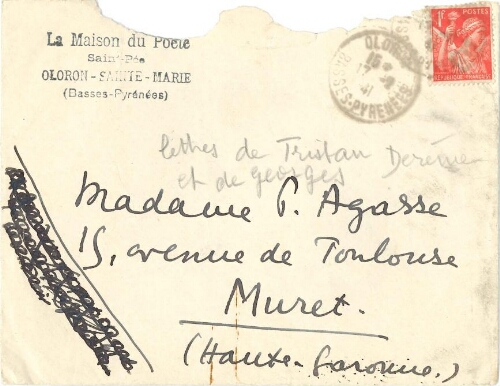 La Maison du Poète
Saint-Pée
OLORON-SAINTE-MARIE
(Basses-Pyrénées)
OLORON
15
17
41
BASSES-PYRENEES
1F
POSTES
REPUBLIQUE FRANÇAISE
lettres de Tristan Derème
et de georges
Madame P. Agasse
15, avenue de Toulouse
Muret.
(Haute-Garonne.)